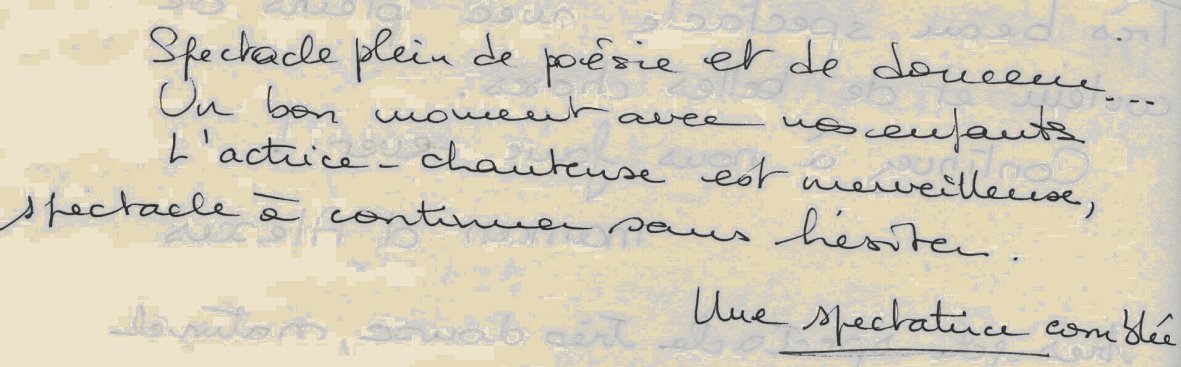 Spectacle plein de poésie et de douceur...
Un bon moment avec nos enfants
L'actrice-chanteuse est merveilleuse,
spectacle à continuer sans hésiter.
Une spectatrice comblée